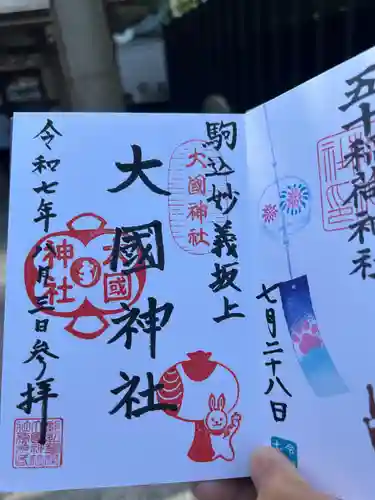 五十稲荷神社
七月二十八日
駒込妙義坂上
大國神社
大國神社
大國
神社
令和七年八月三日参拝